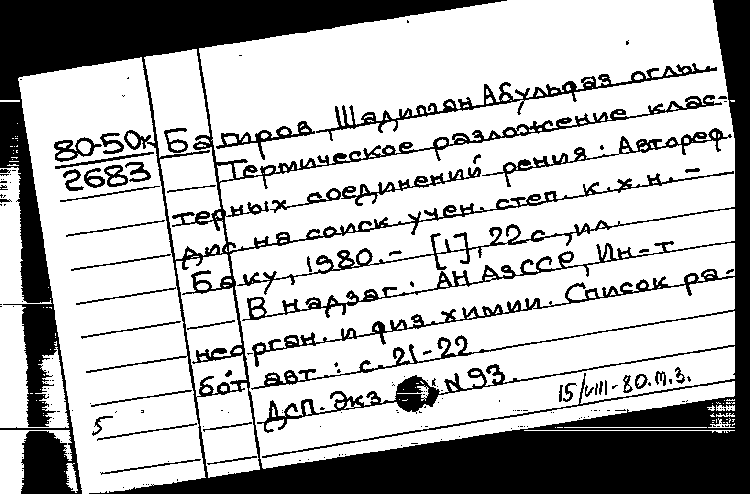 80-50к
2683
Багиров, Шадиман Абульфаз оглы.
Термическое разложение клас-
терных соединений рения: Автореф.
дис. на соиск. учен. степ. к.х.н. -
Баку, 1980. - [1], 22 с., ил.
В надзаг.: АН АзССР, Ин-т
неорган. и физ. химии. Список ра-
бот авт.: с. 21-22.
ДСП. Экз. N 93.
15/VIII-80. т.з.
5